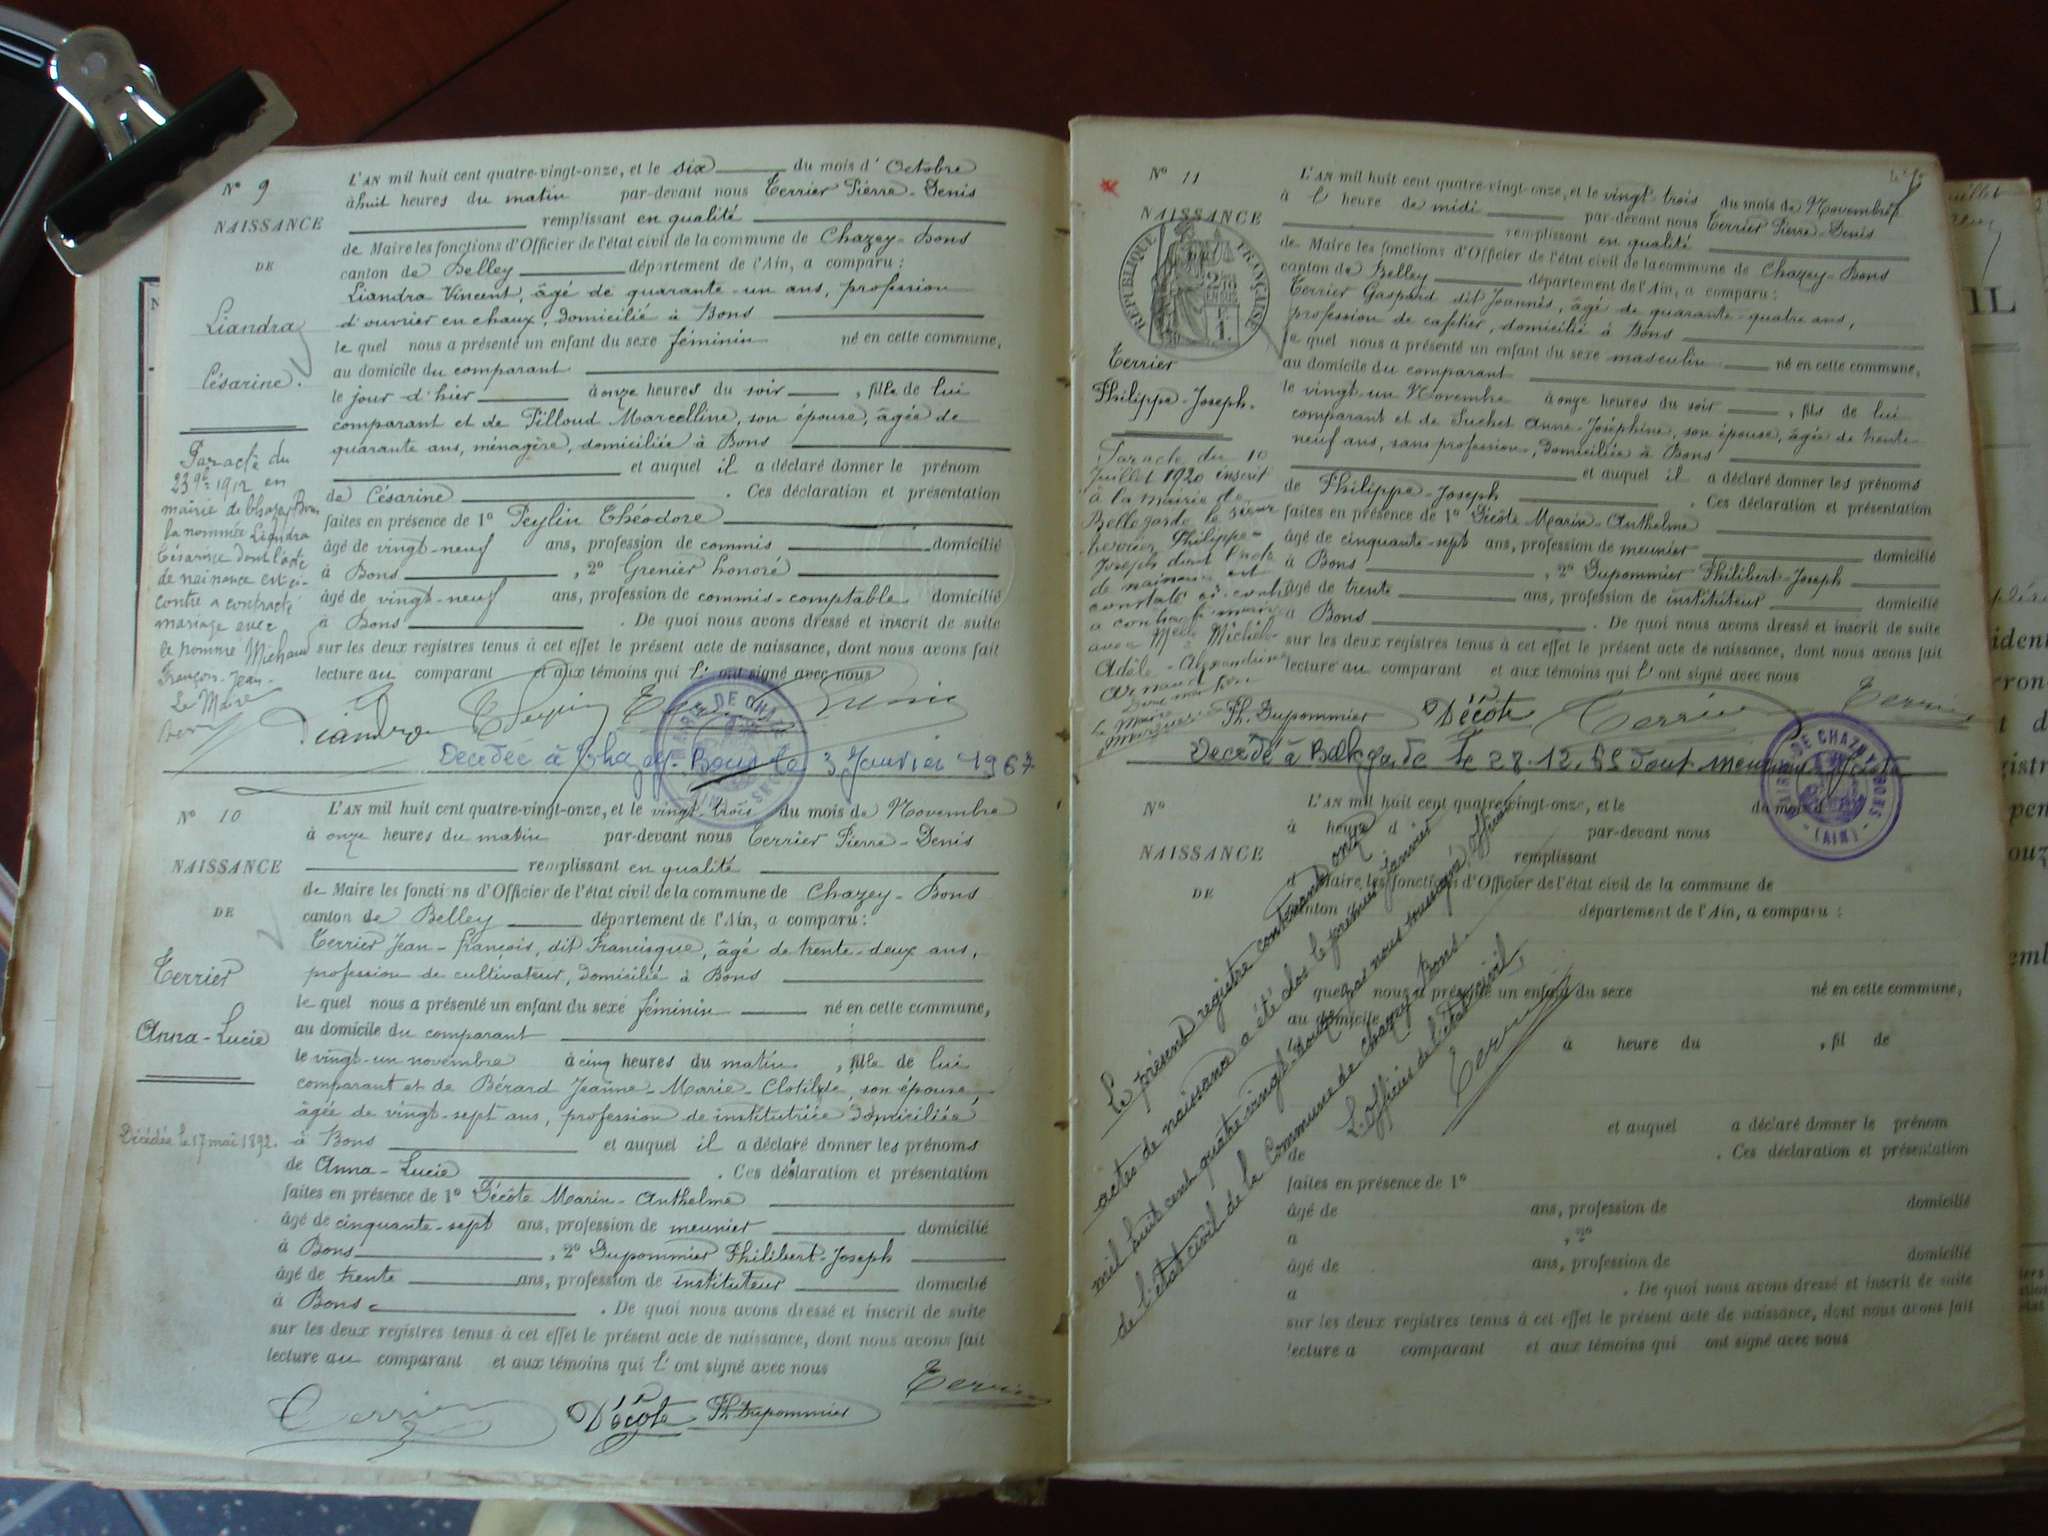 N° 9
NAISSANCE
DE
Liandra
Césarine.
L'AN mil huit cent quatre-vingt-onze, et le six du mois d'Octobre
à huit heures du matin par-devant nous Terrier Pierre-Denis
remplissant en qualité
de Maire les fonctions d'Officier de l'état civil de la commune de Chazey-Bons
canton de Belley département de l'Ain, a comparu :
Liandra Vincent, âgé de quarante-un ans, profession
d'ouvrier en chaux, domicilié à Bons
le quel nous a présenté un enfant du sexe féminin né en cette commune,
au domicile du comparant
le jour d'hier à onze heures du soir, fille de lui
comparant et de Pilloud Marcelline, son épouse, âgée de
quarante ans, ménagère, domiciliée à Bons
et auquel il a déclaré donner le prénom
de Césarine. Ces déclaration et présentation
faites en présence de 1° Peylin Théodore
âgé de vingt-neuf ans, profession de commis domicilié
à Bons, 2° Grenier honoré
âgé de vingt-neuf ans, profession de commis-comptable domicilié
à Bons. De quoi nous avons dressé et inscrit de suite
sur les deux registres tenus à cet effet le présent acte de naissance, dont nous avons fait
lecture au comparant et aux témoins qui l'ont signé avec nous
Par acte du
23 9bre 1912 en
mairie de Chazey-Bons
la nommée Liandra
Césarine dont l'acte
de naissance est ci-
contre a contracté
mariage avec
le nommé Michaud
François-Jean-
Le Maire
Liandra
Décédée à Chazey-Bons le 3 Janvier 1967
N° 10
NAISSANCE
DE
Terrier
Anna-Lucie
Décédée le 17 mai 1892.
L'AN mil huit cent quatre-vingt-onze, et le vingt-trois du mois de Novembre
à onze heures du matin par-devant nous Terrier Pierre-Denis
remplissant en qualité
de Maire les fonctions d'Officier de l'état civil de la commune de Chazey-Bons
canton de Belley département de l'Ain, a comparu :
Terrier Jean-François, dit Francisque, âgé de trente-deux ans,
profession de cultivateur, domicilié à Bons
le quel nous a présenté un enfant du sexe féminin né en cette commune,
au domicile du comparant
le vingt-un novembre à cinq heures du matin, fille de lui
comparant et de Bérard Jeanne-Marie-Clotilde, son épouse,
âgée de vingt-sept ans, profession de institutrice domiciliée
à Bons et auquel il a déclaré donner les prénoms
de Anna-Lucie. Ces déclaration et présentation
faites en présence de 1° Décôte Marin-Anthelme
âgé de cinquante-sept ans, profession de meunier domicilié
à Bons, 2° Dupommier Philibert-Joseph
âgé de trente ans, profession de instituteur domicilié
à Bons. De quoi nous avons dressé et inscrit de suite
sur les deux registres tenus à cet effet le présent acte de naissance, dont nous avons fait
lecture au comparant et aux témoins qui l'ont signé avec nous
Terrier Décôte Ph. Dupommier Terrier
N° 11
NAISSANCE
RÉPUBLIQUE FRANÇAISE
Terrier
Philippe-Joseph.
L'AN mil huit cent quatre-vingt-onze, et le vingt trois du mois de Novembre
à l heure de midi par-devant nous Terrier Pierre-Denis
remplissant en qualité
de Maire les fonctions d'Officier de l'état civil de la commune de Chazey-Bons
canton de Belley département de l'Ain, a comparu :
Terrier Gaspard dit Joannès, âgé de quarante-quatre ans,
profession de cafetier, domicilié à Bons
le quel nous a présenté un enfant du sexe masculin né en cette commune,
au domicile du comparant
le vingt-un Novembre à onze heures du soir, fils de lui
comparant et de Suchet Anne-Joséphine, son épouse, âgée de trente-
neuf ans, sans profession, domiciliée à Bons
et auquel il a déclaré donner les prénoms
de Philippe-Joseph. Ces déclaration et présentation
faites en présence de 1° Décôte Marin-Anthelme
âgé de cinquante-sept ans, profession de meunier domicilié
à Bons, 2° Dupommier Philibert-Joseph
âgé de trente ans, profession de instituteur domicilié
à Bons. De quoi nous avons dressé et inscrit de suite
sur les deux registres tenus à cet effet le présent acte de naissance, dont nous avons fait
lecture au comparant et aux témoins qui l'ont signé avec nous
Par acte du 10
Juillet 1920 inscrit
à la mairie de
Bellegarde le sieur
Terrier Philippe-
Joseph dont l'acte
de naissance est
constaté ci-contre
a contracté mariage
avec Melle Michel
Adèle-Alexandrine
Arnaud
Le Maire
Ph. Dupommier Décôte Terrier Terrier
Décédé à Bellegarde le 28.12.65 Dont mention
MAIRIE DE CHAZEY-BONS
(AIN)
N°
NAISSANCE
DE
L'AN mil huit cent quatre-vingt-onze, et le du mois d
à heure d par-devant nous
remplissant
d Maire les fonctions d'Officier de l'état civil de la commune de
canton département de l'Ain, a comparu :
quel nous a présenté un enfant du sexe né en cette commune,
au domicile
à heure du , fil de
et auquel a déclaré donner le prénom
de . Ces déclaration et présentation
faites en présence de 1°
âgé de ans, profession de domicilié
à , 2°
âgé de ans, profession de domicilié
à . De quoi nous avons dressé et inscrit de suite
sur les deux registres tenus à cet effet le présent acte de naissance, dont nous avons fait
lecture a comparant et aux témoins qui ont signé avec nous
Le présent registre contenant onze
actes de naissance a été clos le premier janvier
mil huit cent quatre vingt-douze par nous soussigné, officier
de l'état civil de la Commune de Chazey-Bons.
L'officier de l'état civil,
Terrier